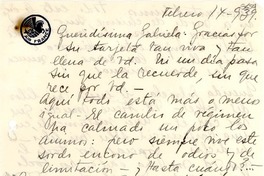 Febrero 14-939.
Queridísima Gabriela: Gracias por
su tarjeta tan viva y tan
llena de Vd. Ni un día pasa
sin que la recuerde, sin que
rece por Vd.—
Aquí todo está más o menos
igual. El cambio de régimen
ha calmado un poco los
ánimos: pero siempre hay este
sordo encono de odios y de
limitación — ¿Hasta cuándo?...